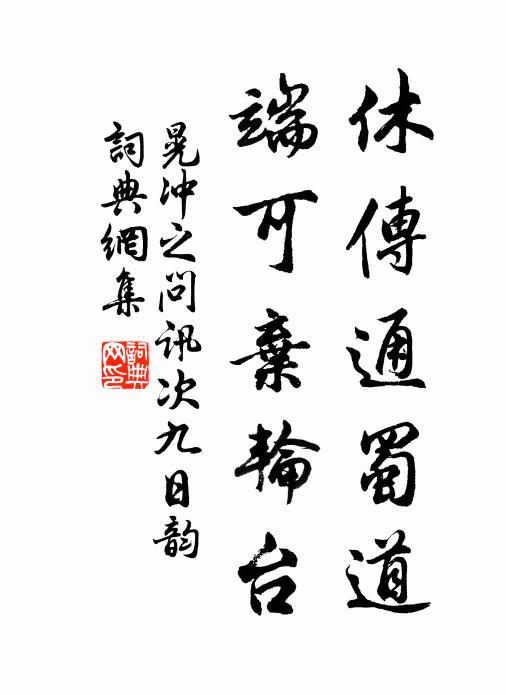 休傳通蜀道
端可棄輪台
晁沖之問訊次九日韵
詞典網集
詞典網印